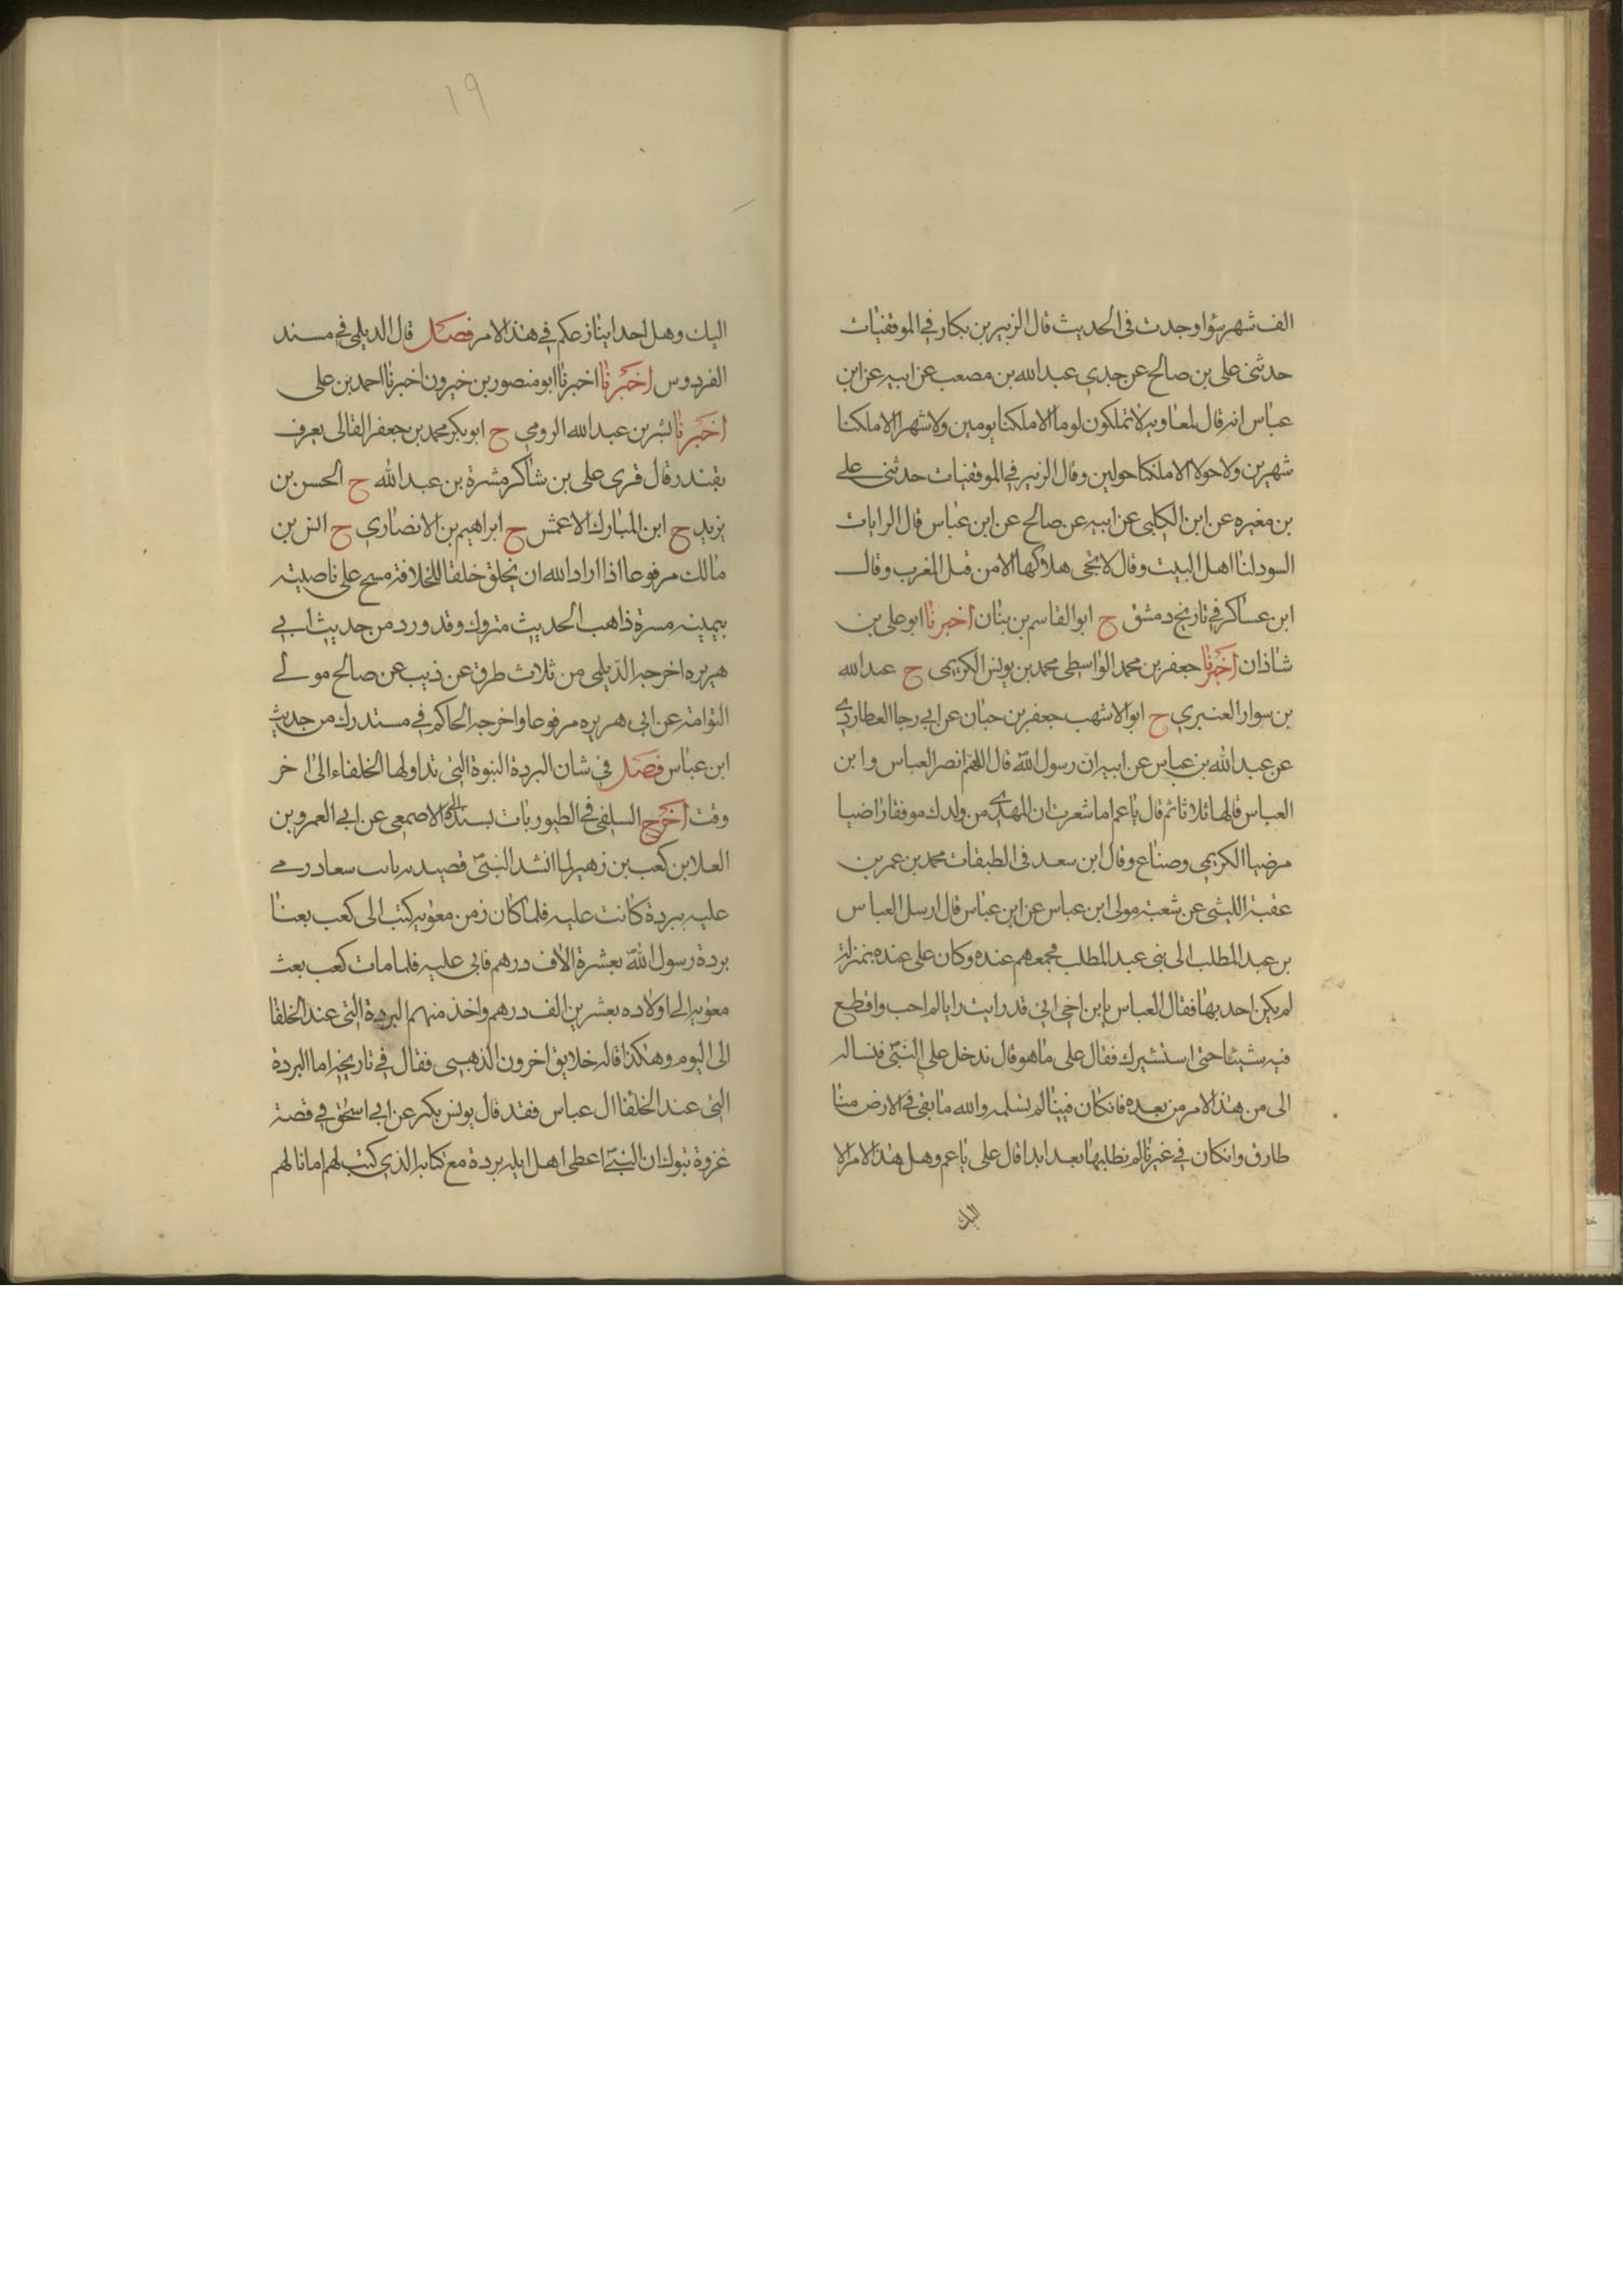 الف شهر سؤا وجدت في الحديث قال الزبير بن بكار في الموقفيات
حدثني علي بن صالح عن جدي عبد الله بن مصعب عن ابيه عن ابن
عباس انه قال لمعاويه لا تملكون يوما الا ملكنا يومين ولا شهرا الا ملكنا
شهرين ولا حولا الا ملنكا حولين وقال الزبير في الموقفيات حدثني علي
بن مغيره عن ابن الكلبي عن ابيه عن صالح عن ابن عباس قال الرايات
السود لنا اهل البيت وقال لا يجى هلاكها الا من قبل المغرب وقال
ابن عساكر في تاريخ دمشق ح ابو القاسم بن بنان اخبرنا ابو علي بن
شاذان اخبرنا جعفر بن محمد الواسطي محمد بن يونس الكريمى ح عبد الله
بن سوار العنبري ح ابو الاشهب جعفر بن حبان عن ابي رجا العطاردي
عن عبد الله بن عباس عن ابيه ان رسول الله قال اللهم انصر العباس وابن
العباس قالها ثلاثا ثم قال يا عم اما شعرت ان المهدي من ولدك موفقا راضيا
مرضيا الكريمي وصناع وقال ابن سعد في الطبقات محمد بن عمر بن
عقبة الليثي عن شعبة مولى ابن عباس عن ابن عباس قال ارسل العباس
بن عبد المطلب الى بني عبد المطلب فجمعهم عنده وكان علي عنده بمنزلة
لم يكن احد بها فقال العباس يا بن اخي اني قد رايت رايا لم احب واقطع
فيه شيئا حتى استشيرك فقال علي ما هو قال ندخل على النبي فنساله
الى من هذا الامر من بعده فانكان فينا لم نسلمه والله ما بقي في الارض منا
طارق وانكان في غيرنا لم نطلبها بعد ابدا قال علي يا عم وهل هذا الامر الا
اليك
١٩
اليك وهل احد ايناز عكم في هذا الامر فصل قال الديلمي في مسند
الفردوس اخبرنا اخبرنا ابو منصور بن خيرون اخبرنا احمد بن علي
اخبرنا بشر بن عبد الله الرومي ح ابو بكر محمد بن جعفر القالى يعرف
بقندر قال قرى علي بن شاكر مشرة بن عبد الله ح الحسن بن
يزيد ح ابن المبارك الاعمش ح ابراهيم بن الانصاري ح انس بن
مالك مرفوعا اذا اراد الله ان يخلق خلقا للخلافة مسح على ناصيته
بيمينه مسرة ذاهب الحديث متروك وقد ورد من حديث ابي
هريره اخرجه الديلمي من ثلاث طرق عن ذيب عن صالح مولى
التوامة عن ابي هريره مرفوعا واخرجه الحاكم في مستدرك من حديث
ابن عباس فصل في شان البردة النبوة التي تداولها الخلفاء الى اخر
وقت اخرج السلفي في الطيوريات بسنده الى الاصمعي عن ابي العمرو بن
العلا بن كعب بن زهير لما انشد النبي قصيدته بانت سعاد رمى
عليه ببردة كانت عليه فلما كان زمن معويه كتب الى كعب بعنا
بردة رسول الله بعشرة الاف درهم فابى عليه فلما مات كعب بعث
معويه الى اولاده بعشرين الف درهم واخذ منهم البردة التي عند الخلفا
الى اليوم وهكذا قاله خلايق اخرون الذهبي فقال في تاريخه اما البردة
التي عند الخلفا ال عباس فقد قال يونس بكر عن ابي اسحق في قصة
غزوة تبوك ان النبي اعطى اهل ايله بردة مع كتابه الذي كتب لهم امانا لهم